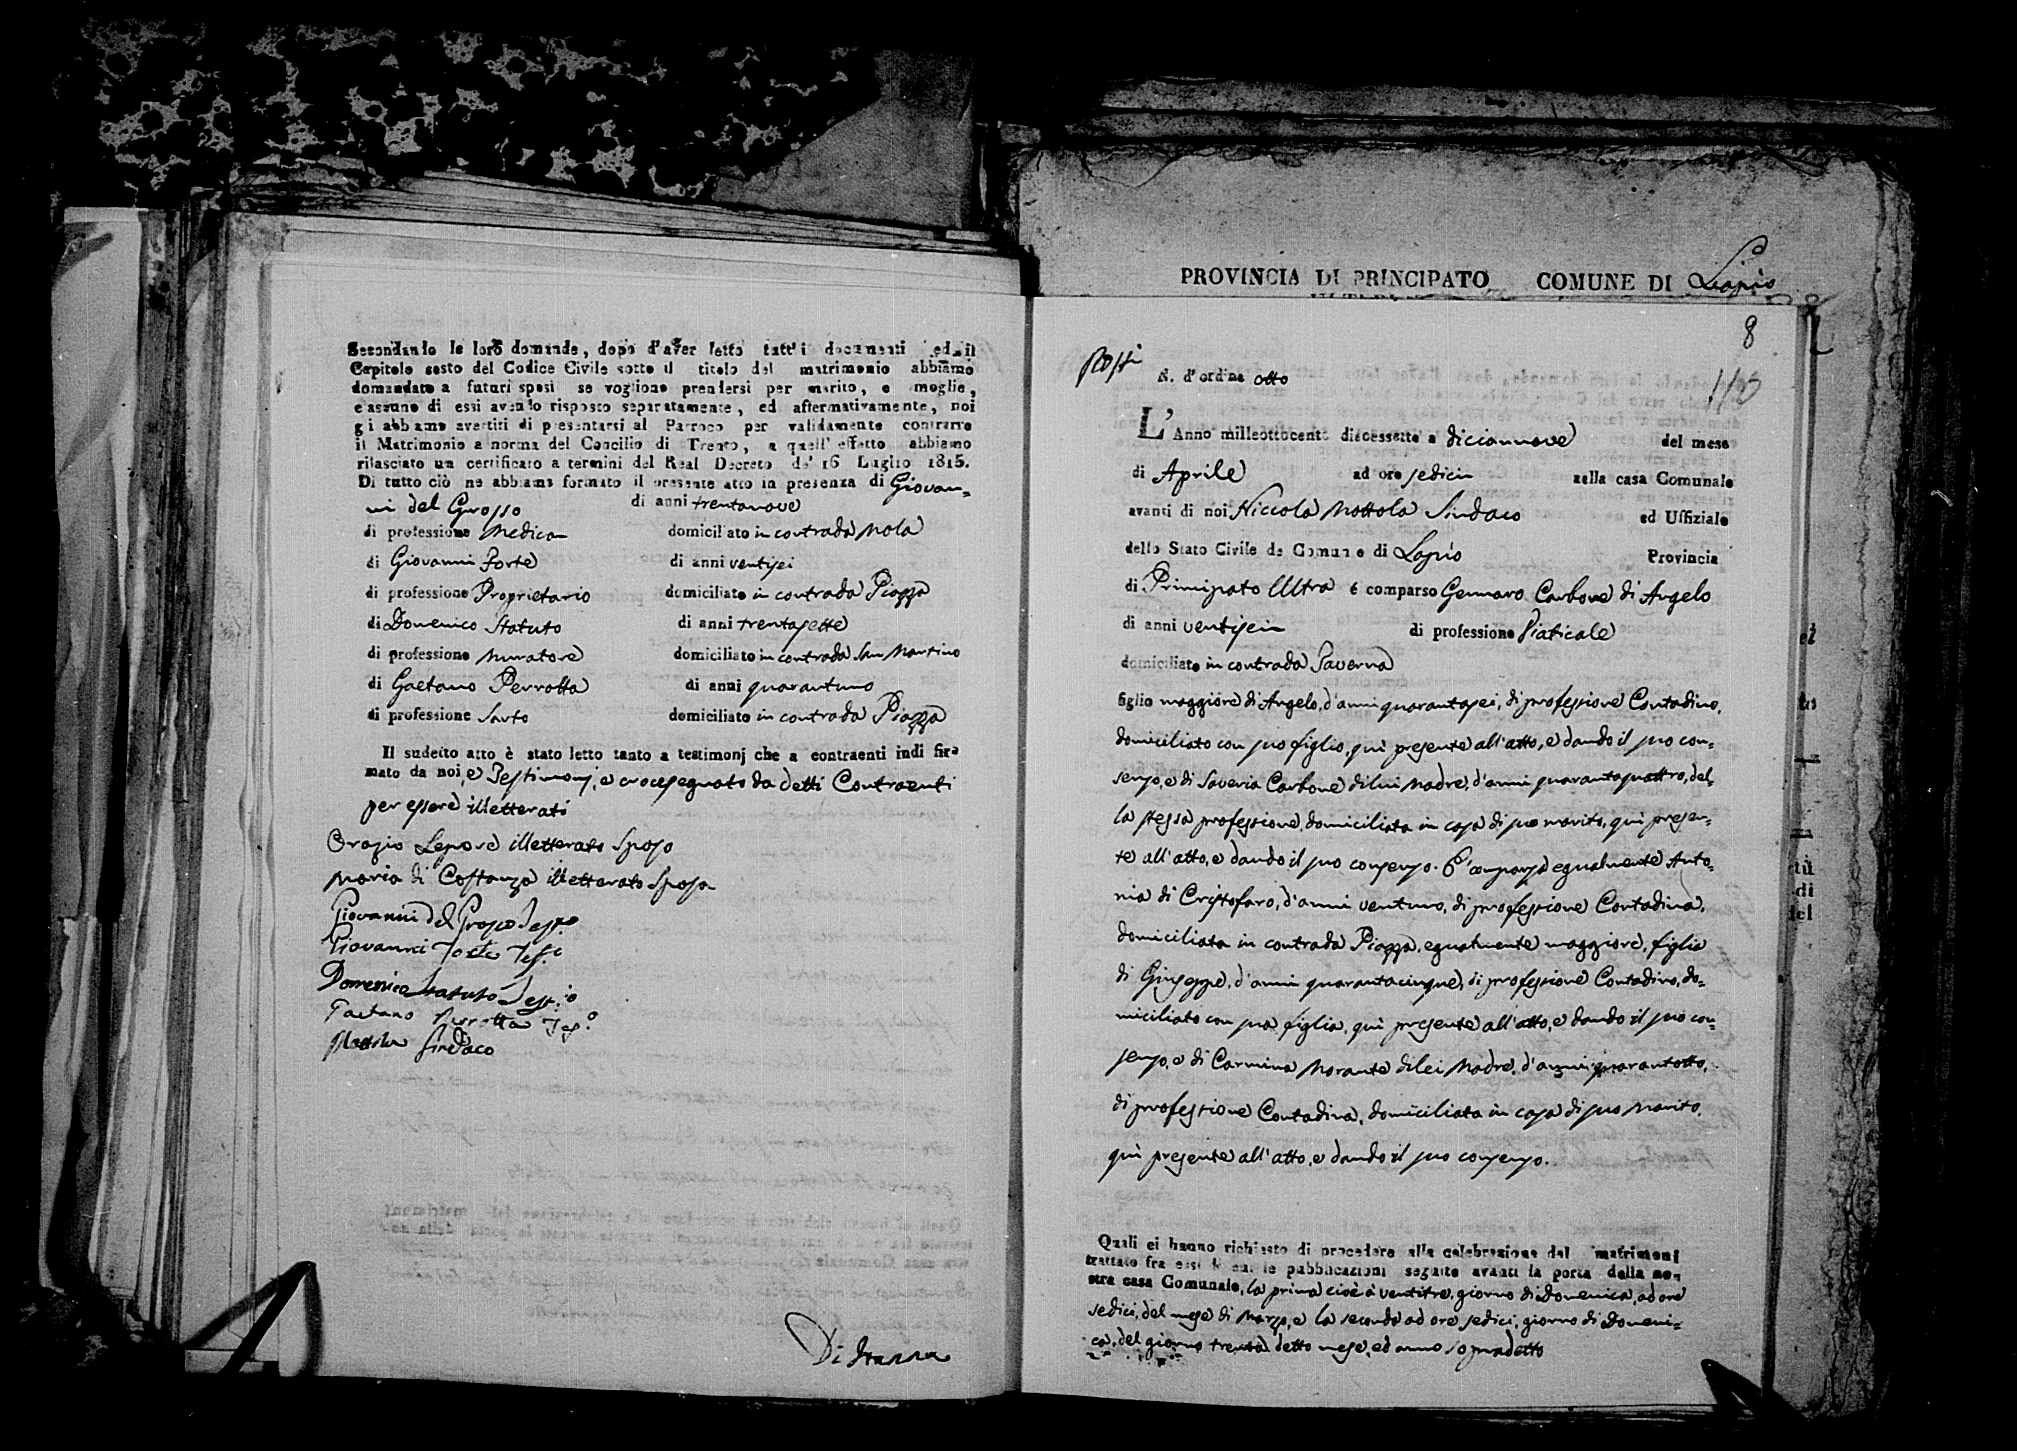 Secondando le loro domande, dopo d'aver letto tutt'i documenti ed il
Capitolo sesto del Codice Civile sotto il titolo del matrimonio abbiamo
domandato a futuri sposi se vogliono prendersi per marito, e moglie,
ciascuno di essi avendo risposto separatamente, ed affermativamente, noi
gi abbiamo avertiti di presentarsi al Parroco per validamente contrarre
il Matrimonio a norma del Concilio di Trento, a quell'effetto abbiamo
rilasciato un certificato a termini del Real Decreto de' 16 Luglio 1815.
Di tutto ciò ne abbiamo formato il presente atto in presenza di Giovan=
ni del Grosso di anni trentanove
di professione Medico domiciliato in contrada Mola
di Giovanni Forte di anni ventisei
di professione Proprietario domiciliato in contrada Piazza
di Domenico Statuto di anni trentasette
di professione Muratore domiciliato in contrada San Martino
di Gaetano Perrotta di anni quarantuno
di professione Sarto domiciliato in contrada Piazza
Il sudetto atto è stato letto tanto a testimonj che a contraenti indi fir=
mato da noi e Testimonj, e crocesegnato da detti Contraenti
per essere illetterati
Orazio Lepore illetterato Sposo
Maria di Costanza illetterato Sposa
Giovanni del Grosso Test.o
Giovanni Forte Tes.o
Domenico Statuto Test.io
Gaetano Perrotta Tes.o
Mottola Sindaco
PROVINCIA DI PRINCIPATO COMUNE DI Lapio
8
110
N. d'ordine otto
L'Anno milleottocento diecessette a diciannove del mese
di Aprile ad ore sedici nella casa Comunale
avanti di noi Niccola Mottola Sindaco ed Uffiziale
dello Stato Civile de Comune di Lapio Provincia
di Principato Ultra é comparso Gennaro Carbone di Angelo
di anni ventisei di professione Viaticale
domiciliato in contrada Taverna
figlio maggiore di Angelo, d'anni quarantasei, di professione Contadino,
domiciliato con suo figlio, quì presente all'atto, e dando il suo con=
senso, e di Saveria Carbone di lui Madre, d'anni quarantaquattro, del=
la stessa professione, domiciliata in casa di suo marito, quì presen=
te all'atto, e dando il suo consenso. E' comparsa egualmente Anto=
nia di Cristofaro, d'anni ventuno, di professione Contadina,
domiciliata in contrada Piazza, egualmente maggiore, figlia
di Giuseppe, d'anni quarantacinque, di professione Contadino, do=
miciliato con sua figlia, quì presente all'atto, e dando il suo con=
senso, e di Carmina Morante di lei Madre, d'anni quarantotto,
di professione Contadina, domiciliata in casa di suo Marito,
quì presente all'atto, e dando il suo consenso.
Quali ci hanno richiesto di procedere alla celebrazione del matrimoni
trattato fra essi le pubblicazioni seguite avanti la porta della no=
stra casa Comunale, la prima cioè a ventitre, giorno di Domenica, ad ore
sedici, del mese di Marzo, e la seconda ad ore sedici, giorno di Domeni=
ca, del giorno trenta detto mese, ed anno sopradetto